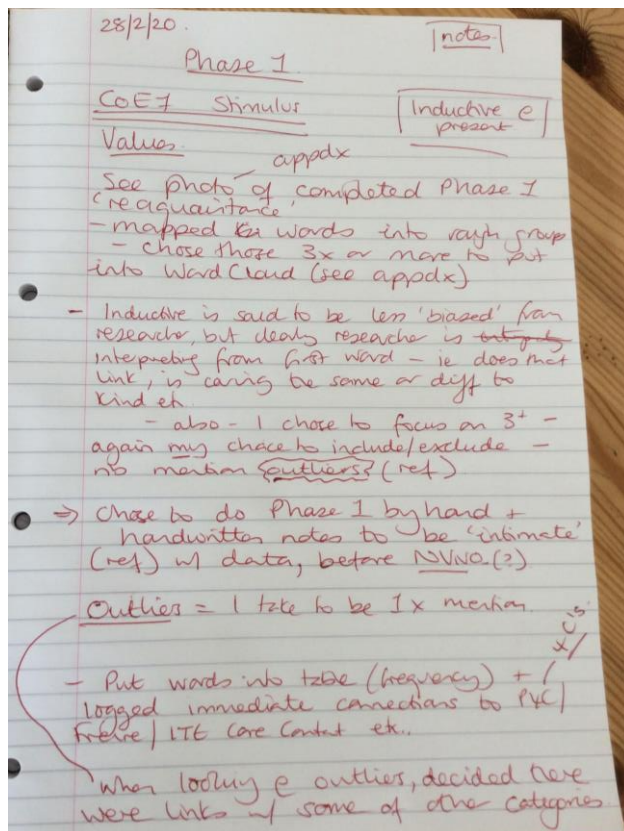 28/2/20.
notes.
Phase 1
COE1 Stimulus
Inductive @
present
Values.
appdx
See photo of completed Phase 1
'reaquaintance'
- mapped words into rough groups
- chose those 3x or more to put
into Word Cloud (see appdx)
- Inductive is said to be less 'biased' from
researcher, but clearly researcher is
interpreting from first word - ie does that
link, is caring the same or diff to
kind etc
- also - I chose to focus on 3+ -
again my choice to include/exclude -
no mention outliers (ref)
⇒ Chose to do Phase 1 by hand +
handwritten notes to be 'intimate'
(ref) w/ data, before NVIVO (?)
Outliers = I take to be 1x mention
- Put words into table (frequency) +
logged immediate connections to PVC/
Freire/ITE Core Content etc.
when looking @ outliers, decided there
were links w/ some of other categories